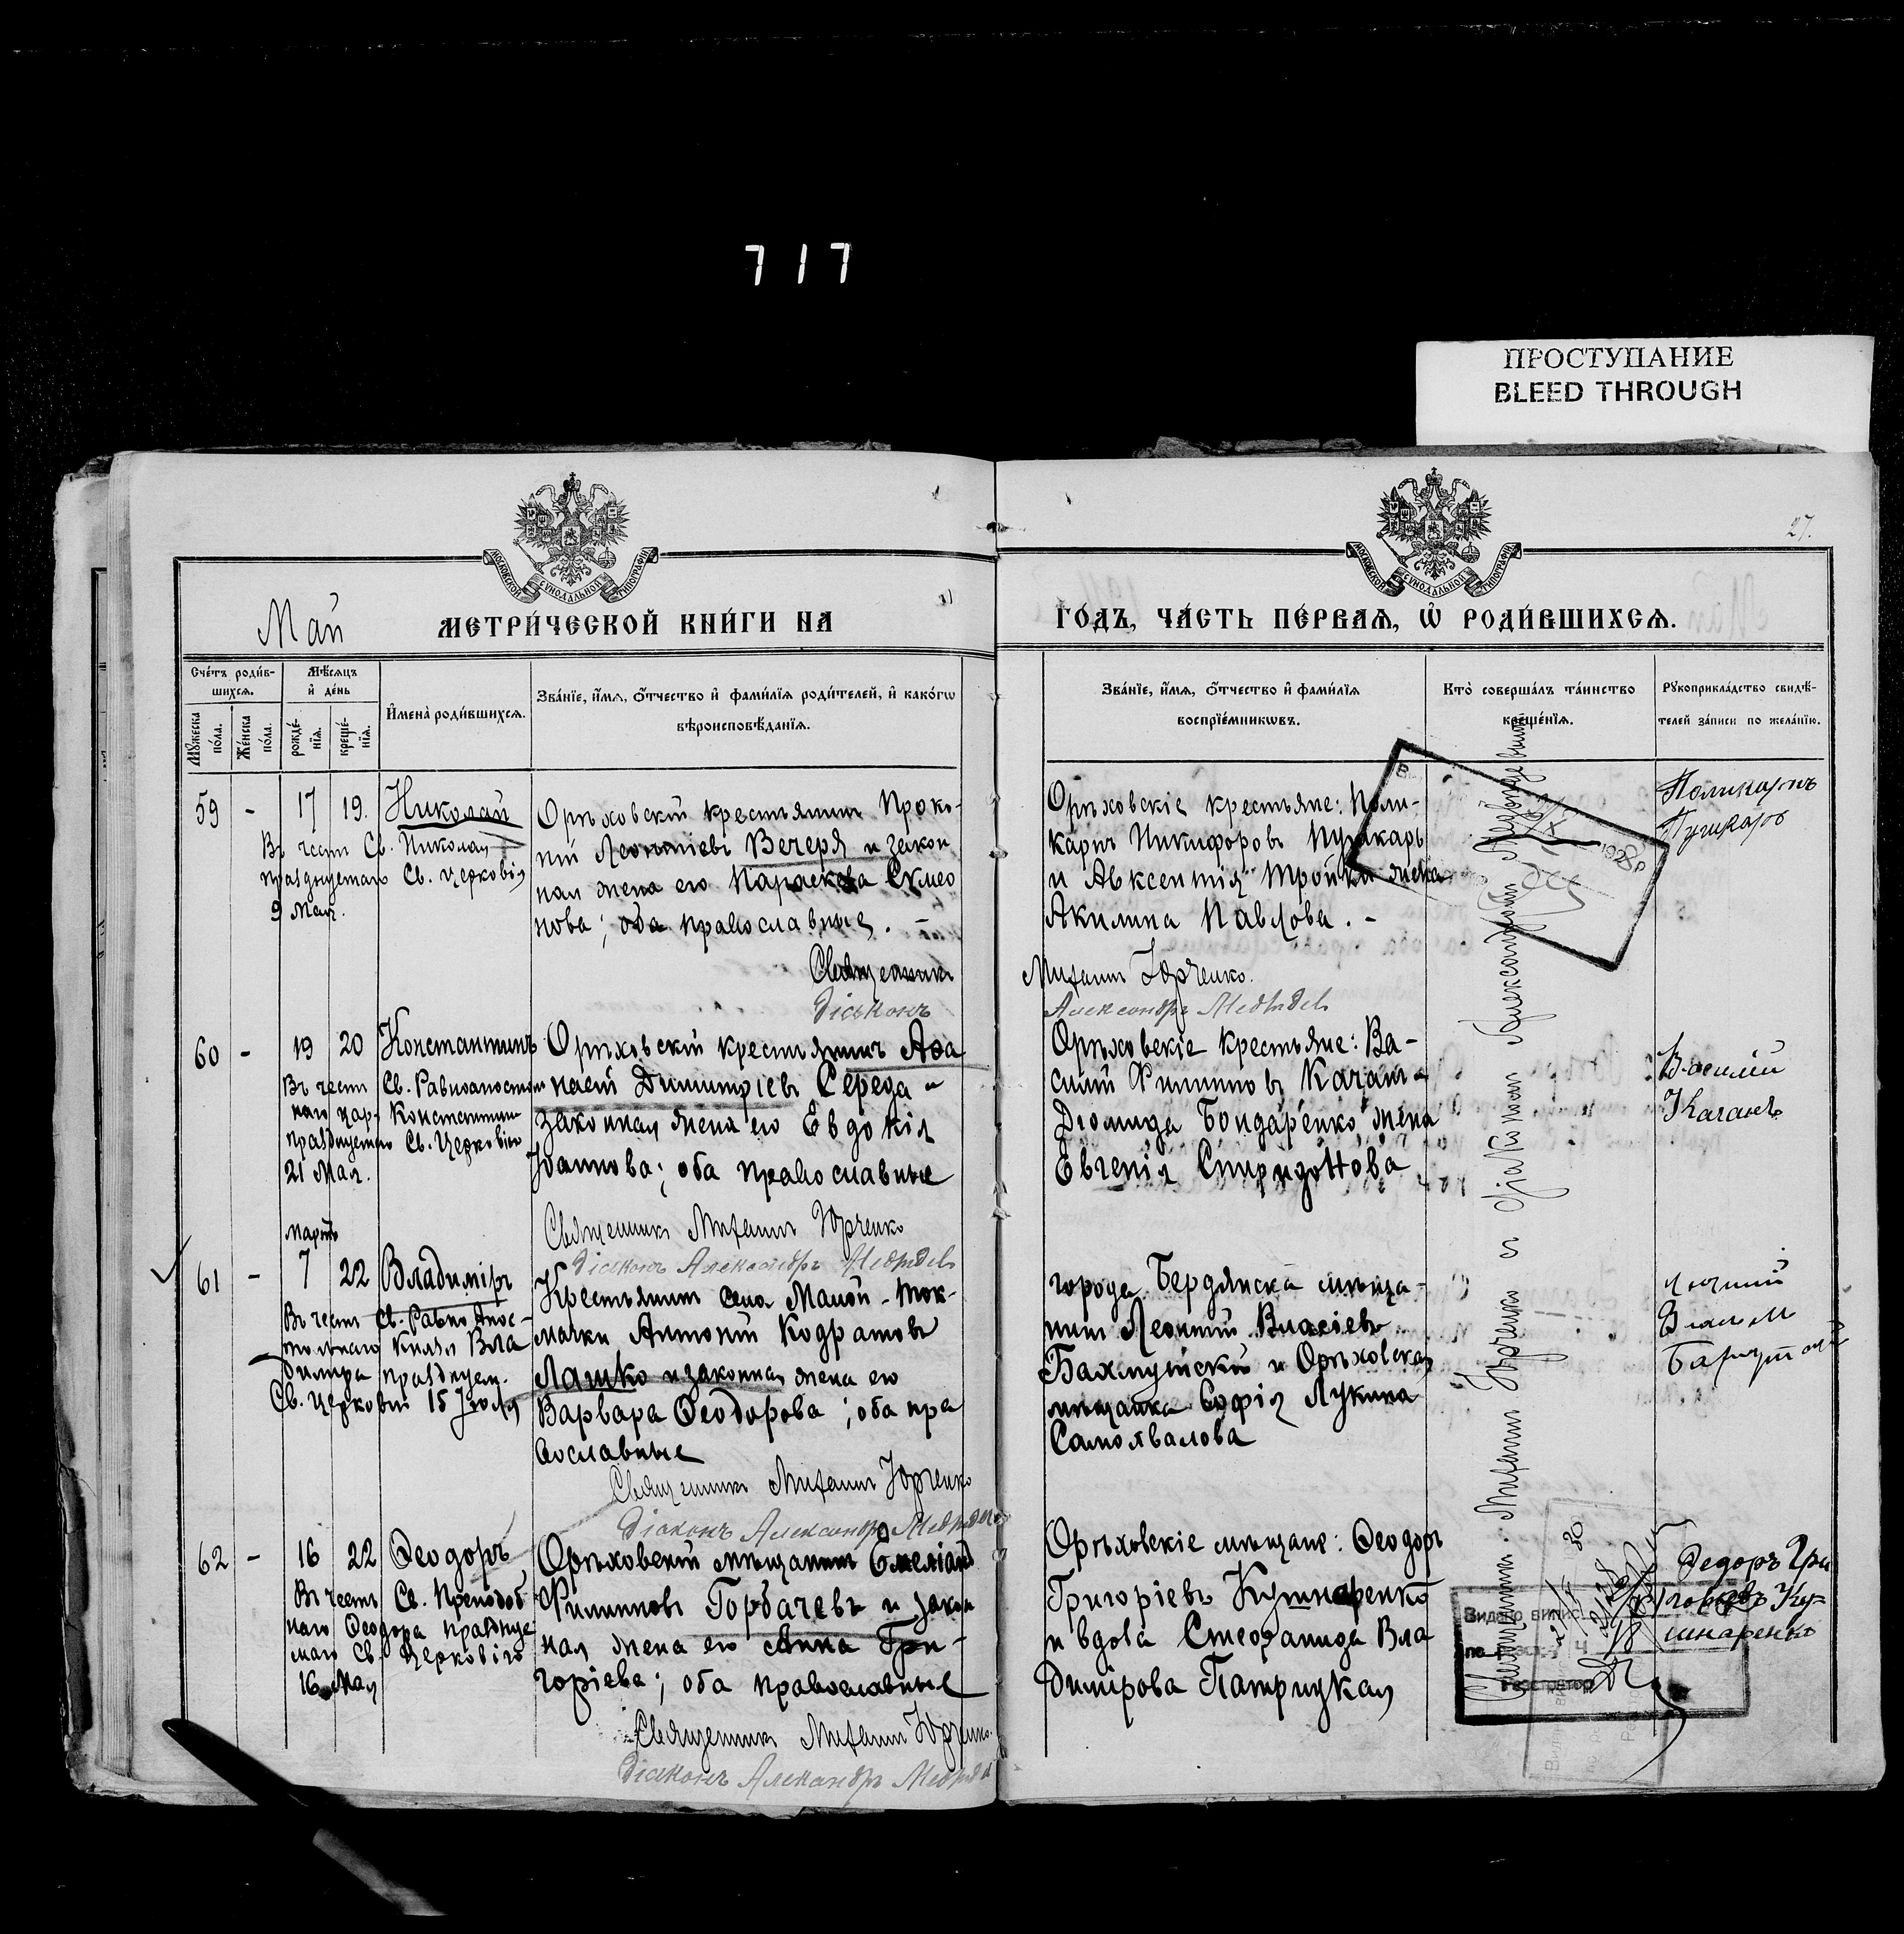 717
ПРОСТУПАНИЕ
BLEED THROUGH
27.
МОСКОВСКОЙ СѴНОДАЛЬНОЙ ТИПОГРАФІИ
МОСКОВСКОЙ СѴНОДАЛЬНОЙ ТИПОГРАФІИ
Май
МЕТРИ́ЧЕСКОЙ КНИ́ГИ НА
ГО́ДЪ, ЧА́СТЬ ПЕ́РВАѦ, Ѡ РОДИ́ВШИХСѦ.
Сче́тъ роди́в-
шихсѧ.
Мꙋ́жеска по́ла.
Же́нска по́ла.
Мѣ́сѧцъ
и҆ де́нь
рожде́-
нїѧ.
креще́-
нїѧ.
И҆мена̀ роди́вшихсѧ.
Зва́нїе, и҆́мѧ, о҆́тчество и҆ фами́лїѧ роди́телей, и҆ како́гѡ
вѣроисповѣ́данїѧ.
Зва́нїе, и҆́мѧ, о҆́тчество и҆ фами́лїѧ
воспрїе́мникѡвъ.
Кто̀ соверша́лъ та́инство
креще́нїѧ.
Рꙋкоприкла́дство свидѣ́-
телей за́писи по жела́нїю.
59 - 17 19. Николай
Въ честь Св. Николая
празднуемаго Св. церковію
9 Мая.
Орѣховскій крестьянинъ Проко-
пій Леонтіевъ Вечеря и закон
ная жена его Параскева Сумео
нова; оба православные.
Священникъ
Діаконъ
Орѣховскіе крестьяне: Поли-
карпъ Никифоровъ Пушкарь
и Авксентія Тройни жена
Акилина Павлова. -
Михаилъ Юрченко.
Александръ Медвѣдев
Поликарпъ
Пушкаров
1928
60 - 19 20 Константинъ
Въ честь Св. Равноапостоль
наго цар. Константина
празднуемаго Св. Церковію
21 Мая.
Орѣховскій крестьянинъ Афа
насій Димитріевъ Середа и
законная жена его Евдокія
Іоаннова; оба православные
Священникъ Михаилъ Юрченко
Діаконъ Александръ Медвѣдев
Орѣховскіе крестьяне: Ва-
силій Филипповъ Качанъ и
Діомида Бондаренко жена
Евгенія Спиридонова
Василій
Качанъ
Мартъ
61 - 7 22 Владиміръ
Въ честь Св. Равно Апос-
тольнаго Князя Вла
диміра празднуем.
Св. Церковію 15 Іюля
Крестьянинъ села Малой-Ток-
мачки Антоній Кодратовъ
Лашко и законная жена его
Варвара Ѳеодорова; оба пра
вославные
Священникъ Михаилъ Юрченко
Діаконъ Александръ Медвѣдев
города Бердянска мѣща-
нинъ Леонтій Власіевъ
Бахмутскій и Орѣховская
мѣщанка Софія Лукина
Самохвалова
62 - 16 22 Ѳеодоръ
Въ честь Св. Преподоб
наго Ѳеодора празднуе
маго Св. Церковію
16 Мая
Орѣховскій мѣщанинъ Емеліанъ
Филипповъ Горбачевъ и закон
ная жена его Анна Гри-
горіева; оба православные
Священникъ Михаилъ Юрченко.
Діаконъ Александръ Медвѣдев
Орѣховскіе мѣщане: Ѳеодоръ
Григоріевъ Кушнаренко
и вдова Стефанида Вла
димірова Патрицкая
Священникъ Михаилъ Юрченко и Діаконъ Александръ Медвѣдевъ
Ѳедоръ Гри
горьевъ Ку=
шнаренко
Видано випис